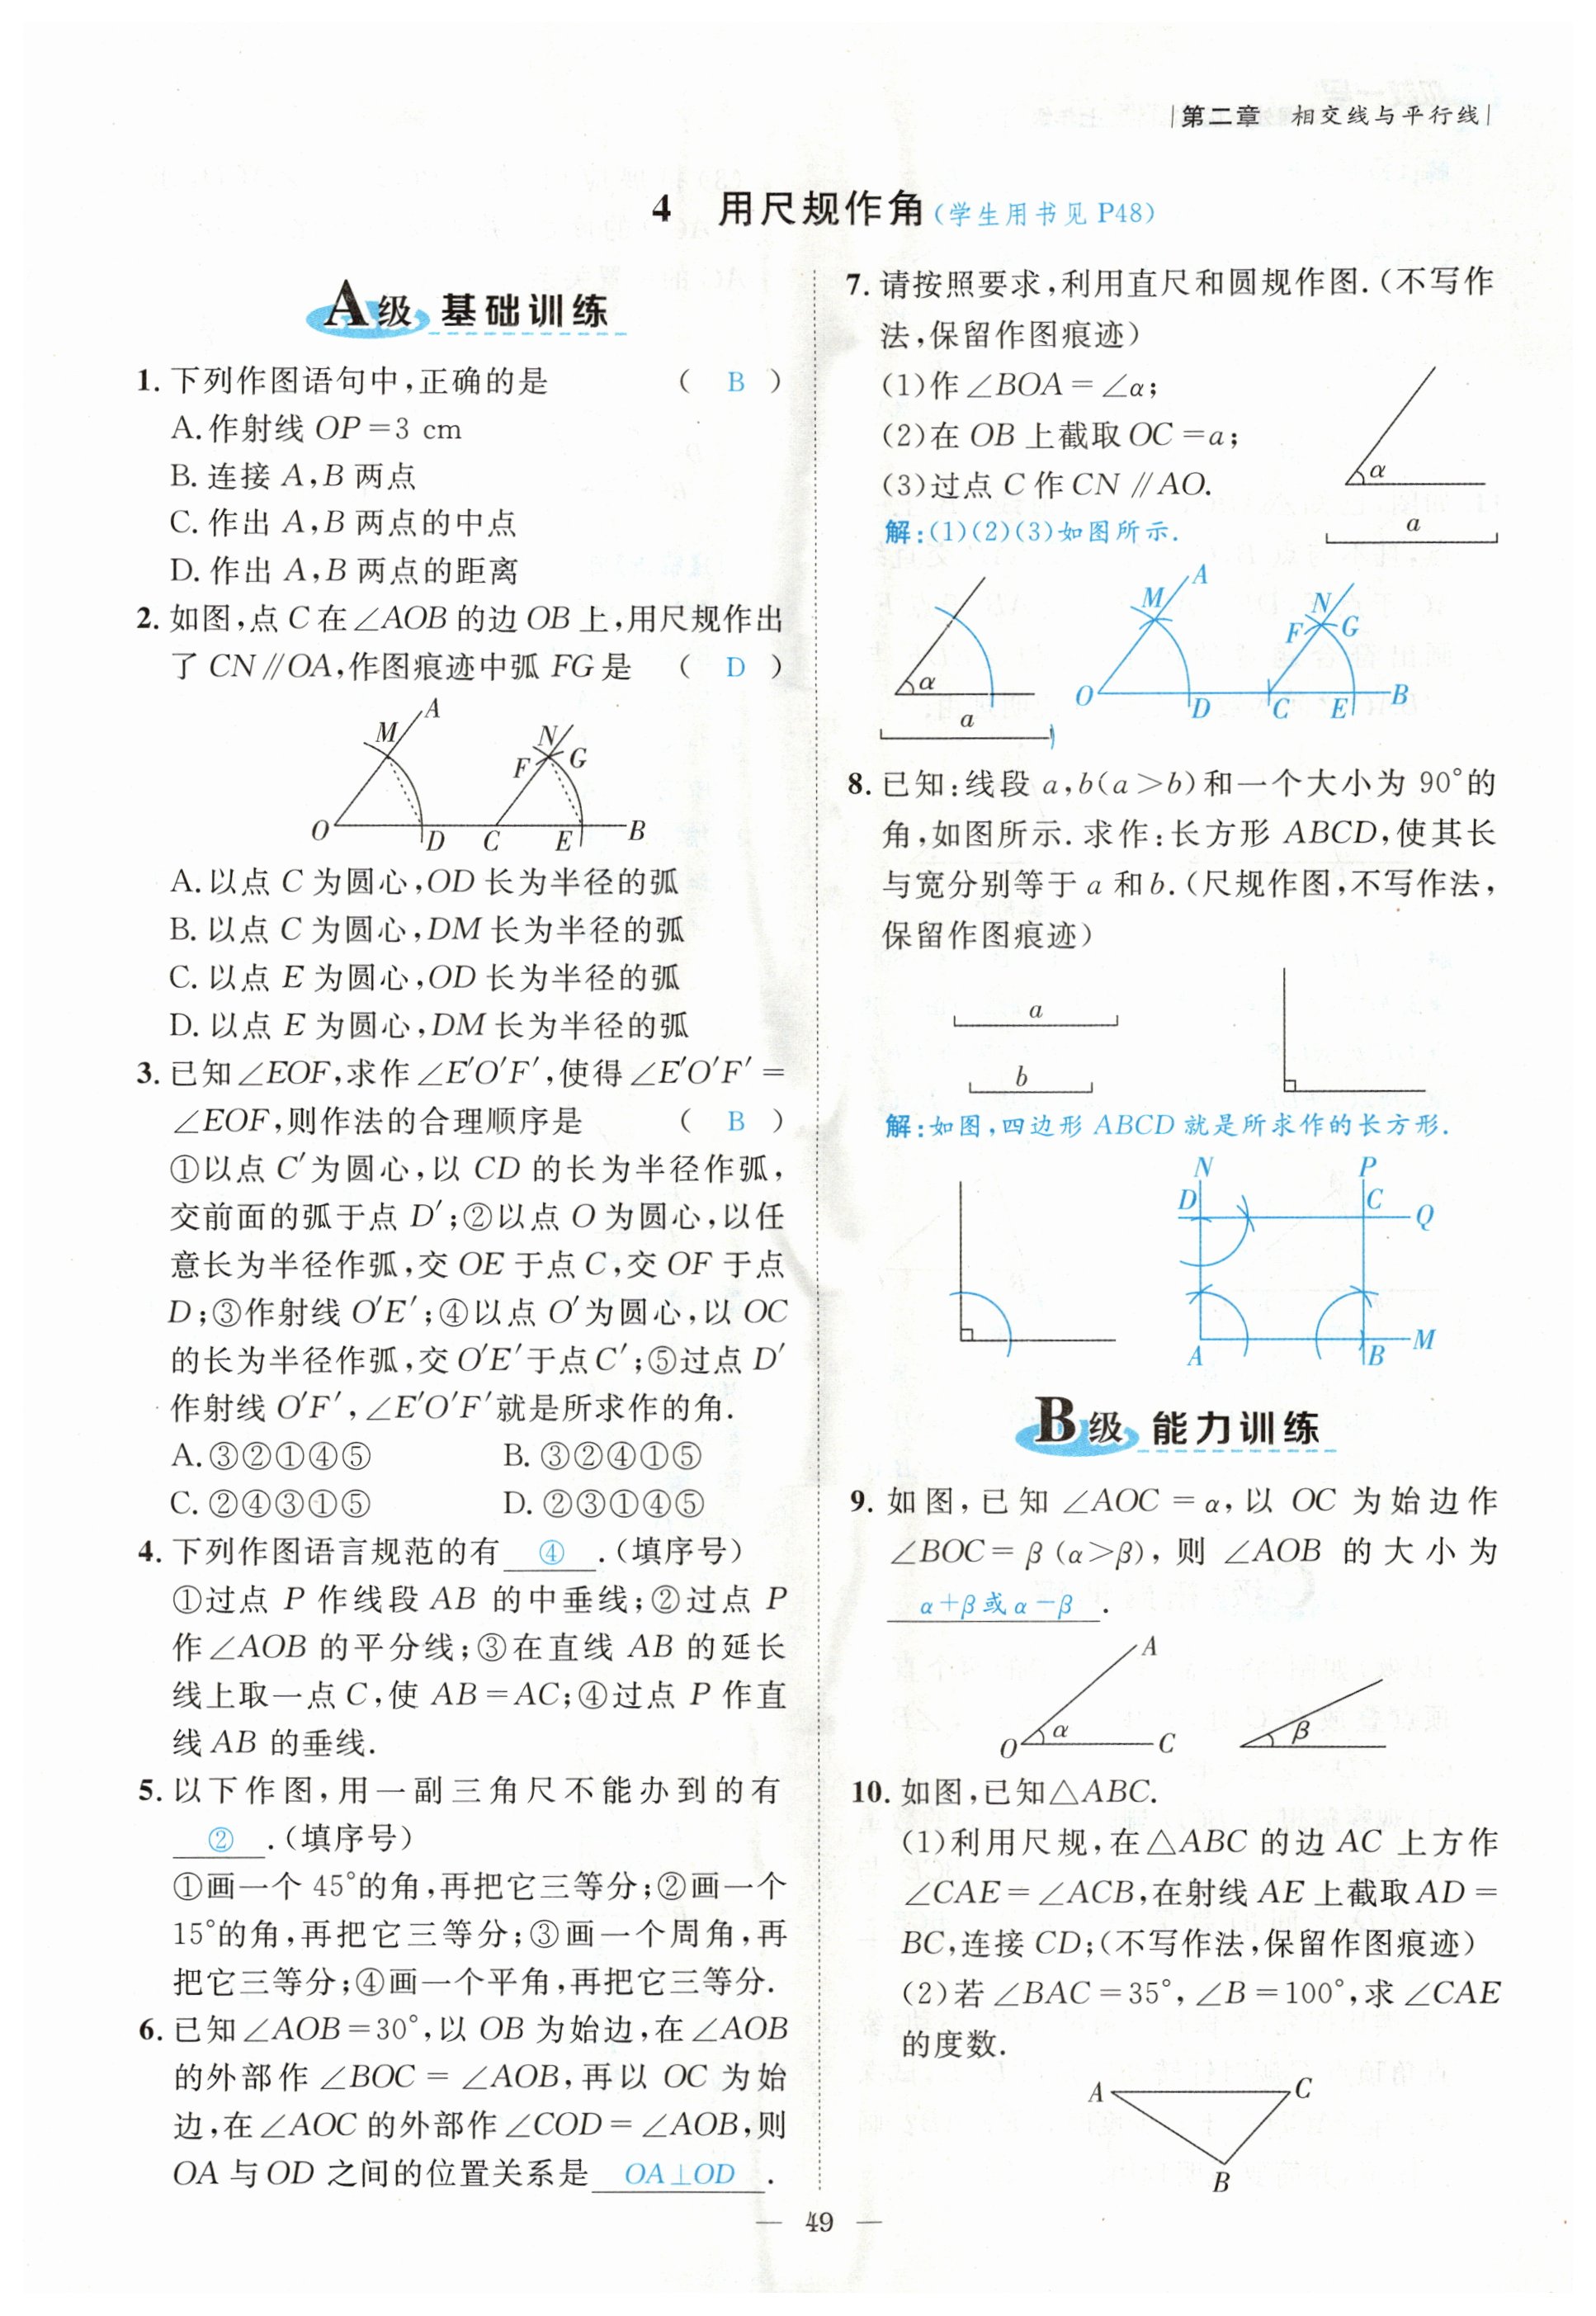 第二章 相交线与平行线
4 用尺规作角(学生用书见 P48)
A级 基础训练
1. 下列作图语句中,正确的是 ( B )
A. 作射线 OP=3 cm
B. 连接 A,B 两点
C. 作出 A,B 两点的中点
D. 作出 A,B 两点的距离
2. 如图,点 C 在∠AOB 的边 OB 上,用尺规作出
了 CN∥OA,作图痕迹中弧 FG 是 ( D )
A
M
N
F
G
O
D
C
E
B
A. 以点 C 为圆心,OD 长为半径的弧
B. 以点 C 为圆心,DM 长为半径的弧
C. 以点 E 为圆心,OD 长为半径的弧
D. 以点 E 为圆心,DM 长为半径的弧
3. 已知∠EOF,求作∠E′O′F′,使得∠E′O′F′=
∠EOF,则作法的合理顺序是 ( B )
①以点 C′为圆心,以 CD 的长为半径作弧,
交前面的弧于点 D′;②以点 O 为圆心,以任
意长为半径作弧,交 OE 于点 C,交 OF 于点
D;③作射线 O′E′;④以点 O′为圆心,以 OC
的长为半径作弧,交 O′E′于点 C′;⑤过点 D′
作射线 O′F′,∠E′O′F′就是所求作的角.
A. ③②①④⑤ B. ③②④①⑤
C. ②④③①⑤ D. ②③①④⑤
4. 下列作图语言规范的有 ④ .(填序号)
①过点 P 作线段 AB 的中垂线;②过点 P
作∠AOB 的平分线;③在直线 AB 的延长
线上取一点 C,使 AB=AC;④过点 P 作直
线 AB 的垂线.
5. 以下作图,用一副三角尺不能办到的有
② .(填序号)
①画一个 45°的角,再把它三等分;②画一个
15°的角,再把它三等分;③画一个周角,再
把它三等分;④画一个平角,再把它三等分.
6. 已知∠AOB=30°,以 OB 为始边,在∠AOB
的外部作∠BOC=∠AOB,再以 OC 为始
边,在∠AOC 的外部作∠COD=∠AOB,则
OA 与 OD 之间的位置关系是 OA⊥OD .
7. 请按照要求,利用直尺和圆规作图.(不写作
法,保留作图痕迹)
(1)作∠BOA=∠α;
(2)在 OB 上截取 OC=a;
(3)过点 C 作 CN∥AO.
α
a
解:(1)(2)(3)如图所示.
α
a
A
M
N
F
G
O
D
C
E
B
8. 已知:线段 a,b(a>b)和一个大小为 90°的
角,如图所示.求作:长方形 ABCD,使其长
与宽分别等于 a 和 b.(尺规作图,不写作法,
保留作图痕迹)
a
b
解:如图,四边形 ABCD 就是所求作的长方形.
N
P
D
C
Q
A
B
M
B级 能力训练
9. 如图,已知∠AOC=α,以 OC 为始边作
∠BOC=β(α>β),则∠AOB 的大小为
α+β或α-β .
A
α
O
C
β
10. 如图,已知△ABC.
(1)利用尺规,在△ABC 的边 AC 上方作
∠CAE=∠ACB,在射线 AE 上截取 AD=
BC,连接 CD;(不写作法,保留作图痕迹)
(2)若∠BAC=35°,∠B=100°,求∠CAE
的度数.
A
C
B
— 49 —